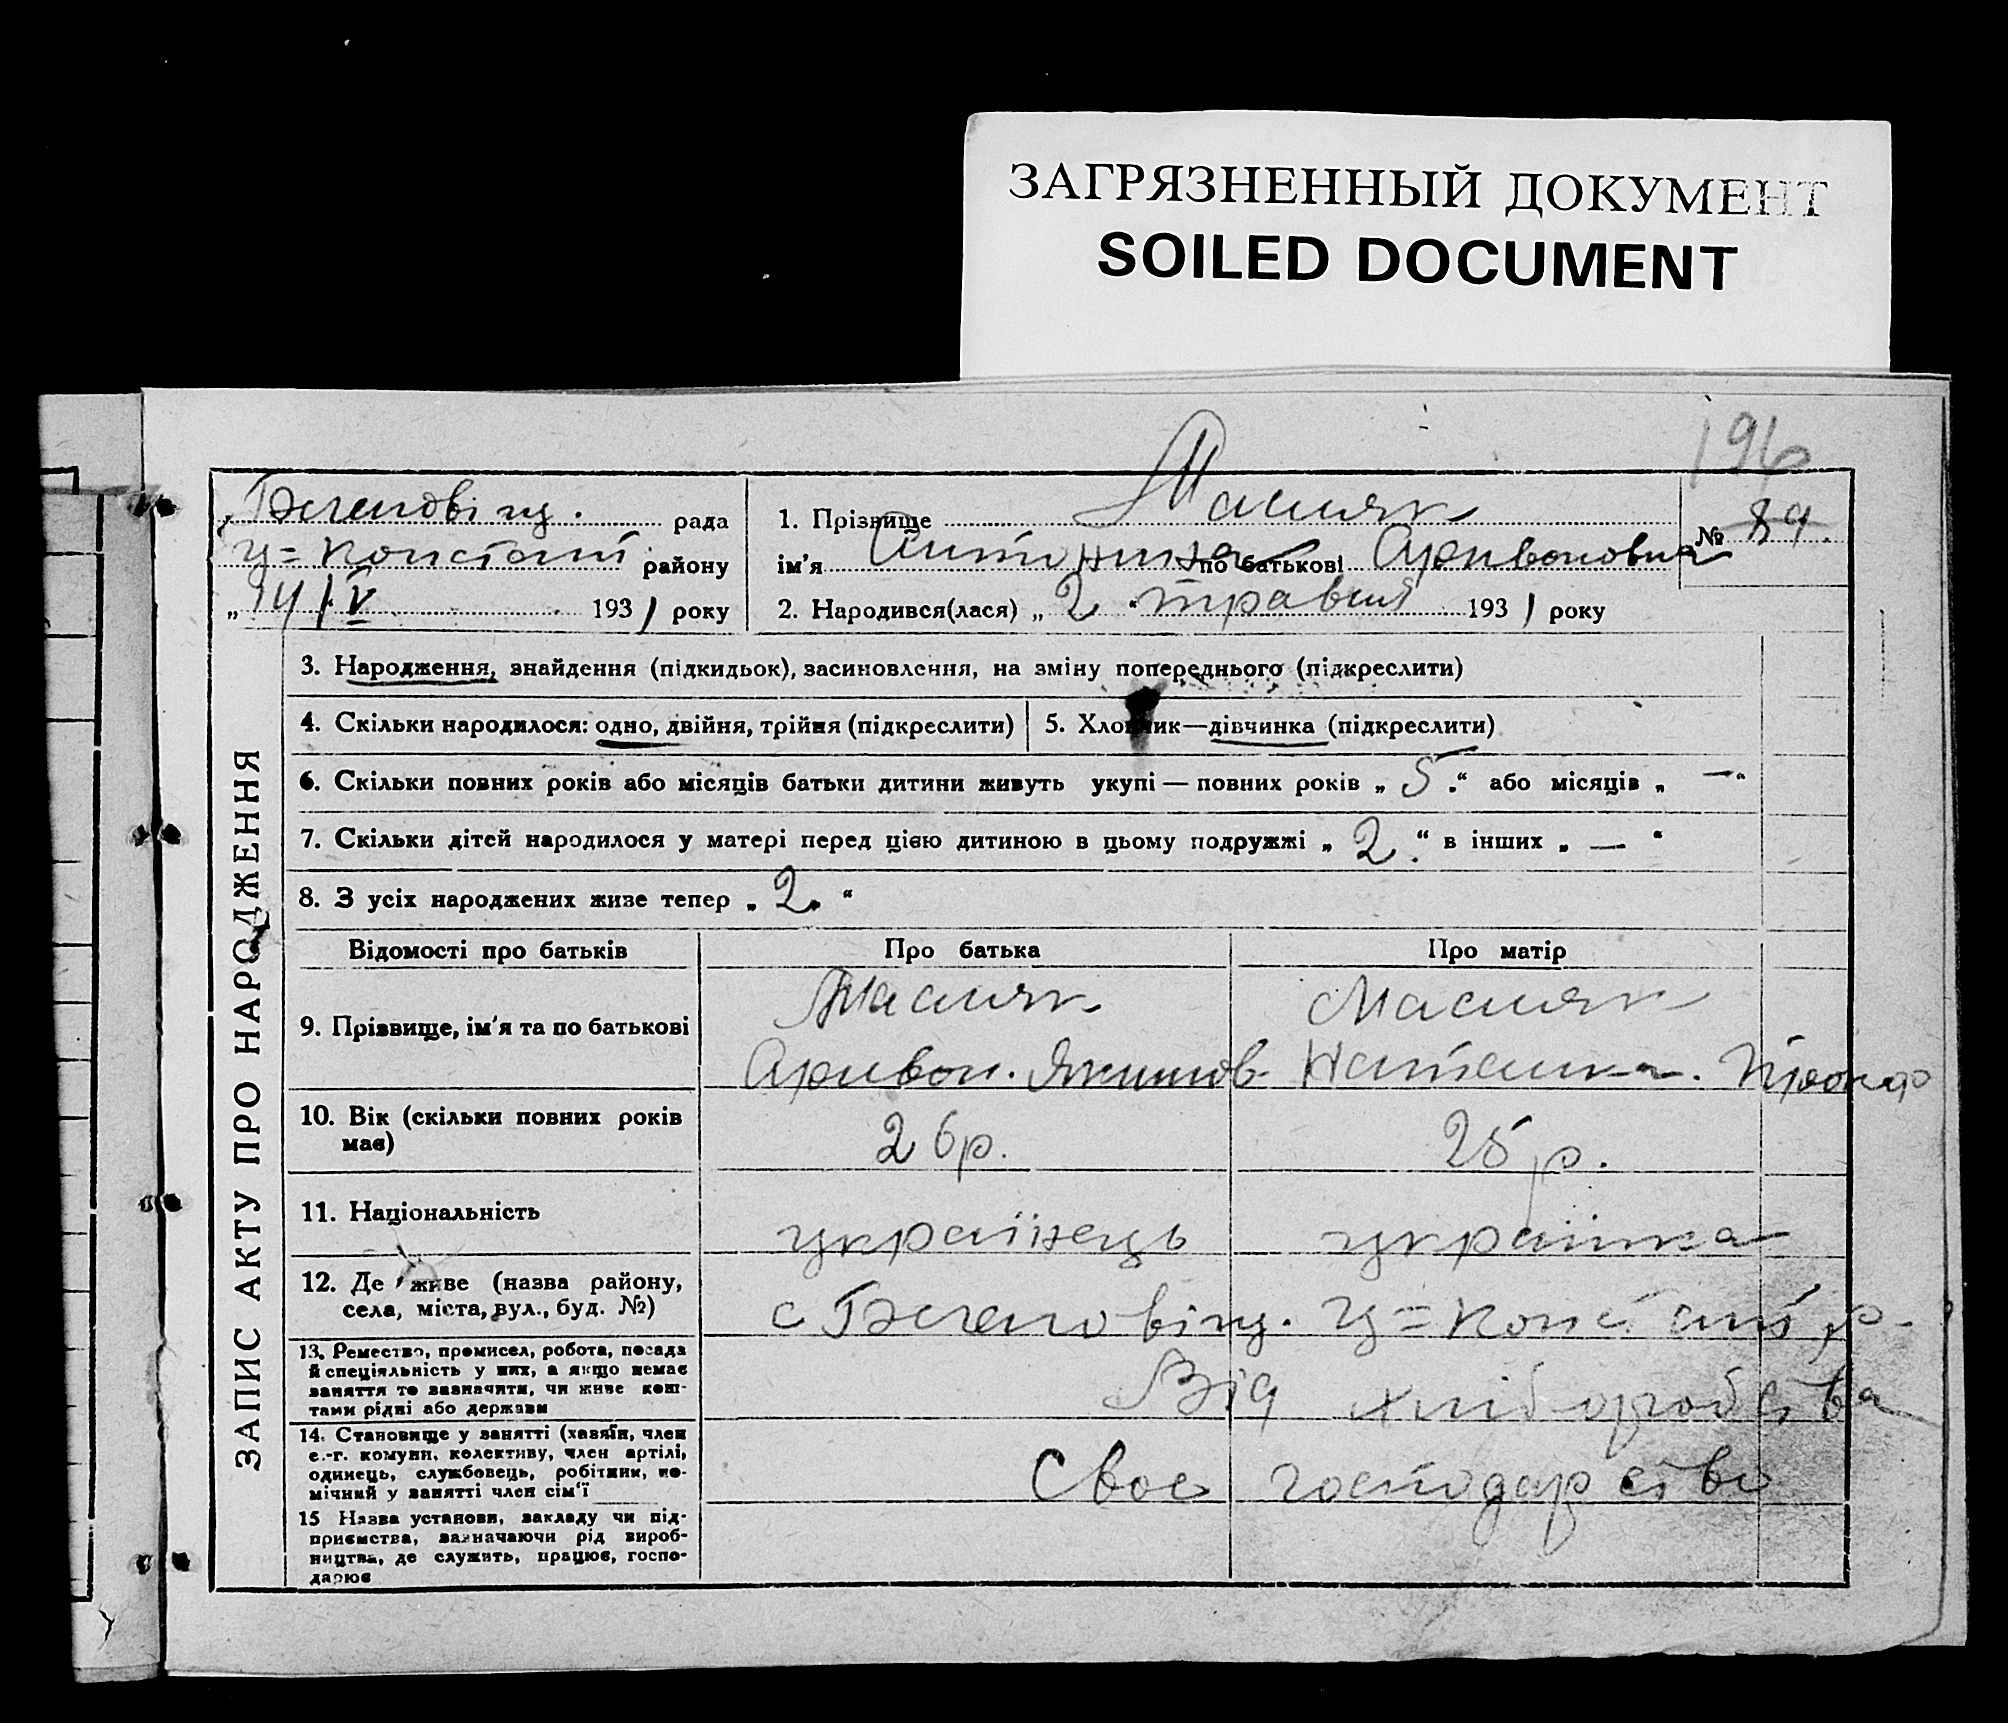 ЗАГРЯЗНЕННЫЙ ДОКУМЕНТ
SOILED DOCUMENT
196
рада
Ц=Констант. району
„14/V 1931 року
1. Прізвище Масляк
ім'я Антонина по батькові Архивоновна
2. Народився(лася) „2“ травня 1931 року
№ 89.
ЗАПИС АКТУ ПРО НАРОДЖЕННЯ
3. Народження, знайдення (підкидьок), засиновлення, на зміну попереднього (підкреслити)
4. Скільки народилося: одно, двійня, трійня (підкреслити)
5. Хлопчик—дівчинка (підкреслити)
6. Скільки повних років або місяців батьки дитини живуть укупі — повних років „5.“ або місяців „—“
7. Скільки дітей народилося у матері перед цією дитиною в цьому подружжі „2.“ в інших „—“
8. З усіх народжених живе тепер „2.“
Відомості про батьків Про батька Про матір
9. Прізвище, ім'я та по батькові
Масляк Масляк
Архивон. Якимов. Наталка.
10. Вік (скільки повних років має)
26 р. 25 р.
11. Національність
українець українка
12. Де живе (назва району,
села, міста, вул., буд. №)
с Ц=Констант р.
13. Ремество, промисел, робота, посада
й спеціяльність у них, а якщо немає
заняття то зазначити, чи живе кош-
тами рідні або держави
Від хліборобства
14. Становище у занятті (хазяїн, член
с.-г. комуни, колективу, член артілі,
одинець, службовець, робітник, по-
мічний у занятті член сім'ї
Своє господарство
15 Назва установи, закладу чи під-
приємства, зазначаючи рід вироб-
ництва, де служить, працює, госпо-
дарює